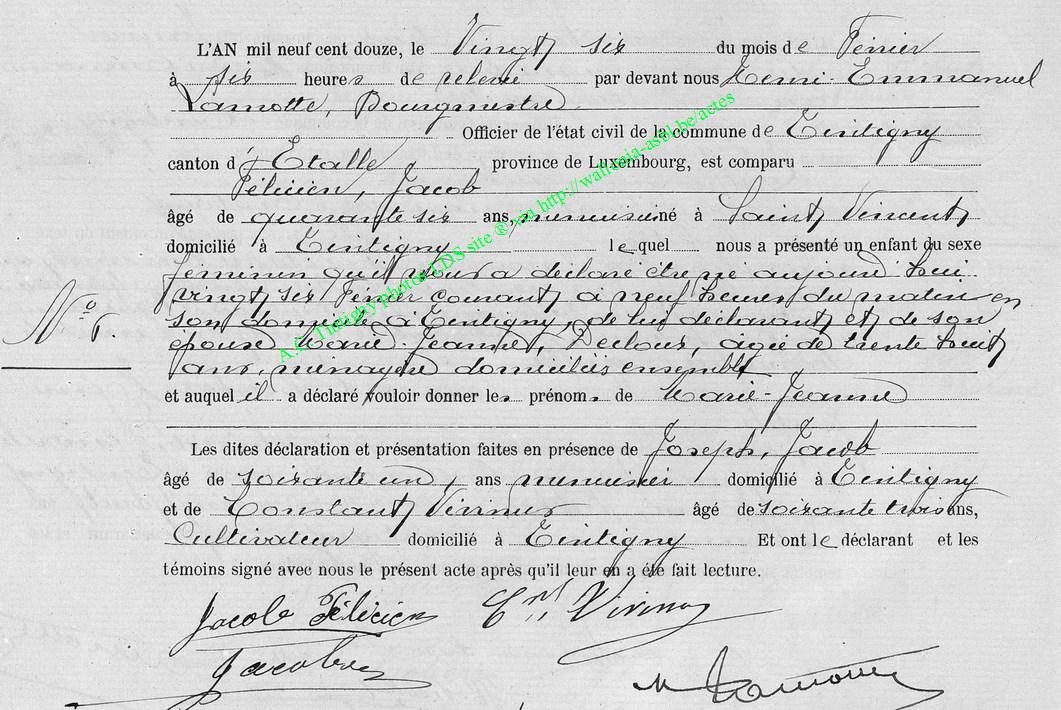 L'AN mil neuf cent douze, le Vingt six du mois de Février
à six heures de relevé par devant nous Henri-Emmanuel
Lamotte, Bourgmestre
Officier de l'état civil de la commune de Tintigny
canton d'Etalle province de Luxembourg, est comparu
Félicien, Jacob
âgé de quarante six ans, menuisier né à Saint Vincent
domicilié à Tintigny lequel nous a présenté un enfant du sexe
féminin qu'il nous a déclaré être né aujourd'hui
vingt six Février courant à neuf heures du matin en
son domicile à Tintigny, de lui déclarant et de son
épouse Marie-Jeanne, agée de trente huit
ans, ménagère domiciliés ensemble
et auquel il a déclaré vouloir donner les prénoms de Marie-Jeanne
Les dites déclaration et présentation faites en présence de Joseph, Jacob
âgé de soixante un, ans menuisier domicilié à Tintigny
et de Constant Virmus âgé de soixante trois ans,
Cultivateur domicilié à Tintigny Et ont le déclarant et les
témoins signé avec nous le présent acte après qu'il leur en a été fait lecture.
Jacob Félicien
Jacob
Lamotte
No 1.
A.C. Tintigny photos LDS site ® via http://wallonia-asbl.be/actes